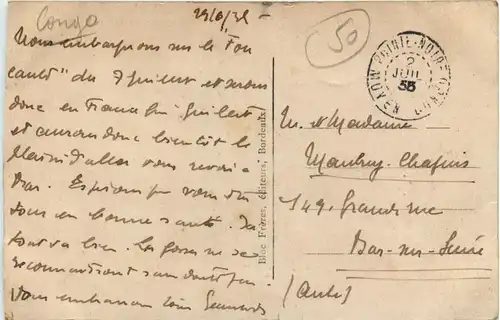 Congo
29/6/35
50
Nous embarquons sur le "Fou
cault" du 7 Juillet et serons
donc en France fin Juillet
et aurons donc bientôt le
plaisir d'aller vous revoir à
Bar. Espérons que vous êtes
tous en bonne santé. Ici
tout va bien. Les gosses ne se
reconnaitront sans doute pas.
Vous embrassons tous
Bloc Frères, éditeurs, Bordeaux
POINTE-NOIRE
MOYEN CONGO
2
JUIL
35
M. et Madame
Maubrey-Chapuis
149, Grande rue
Bar-sur-Seine
(Aube)